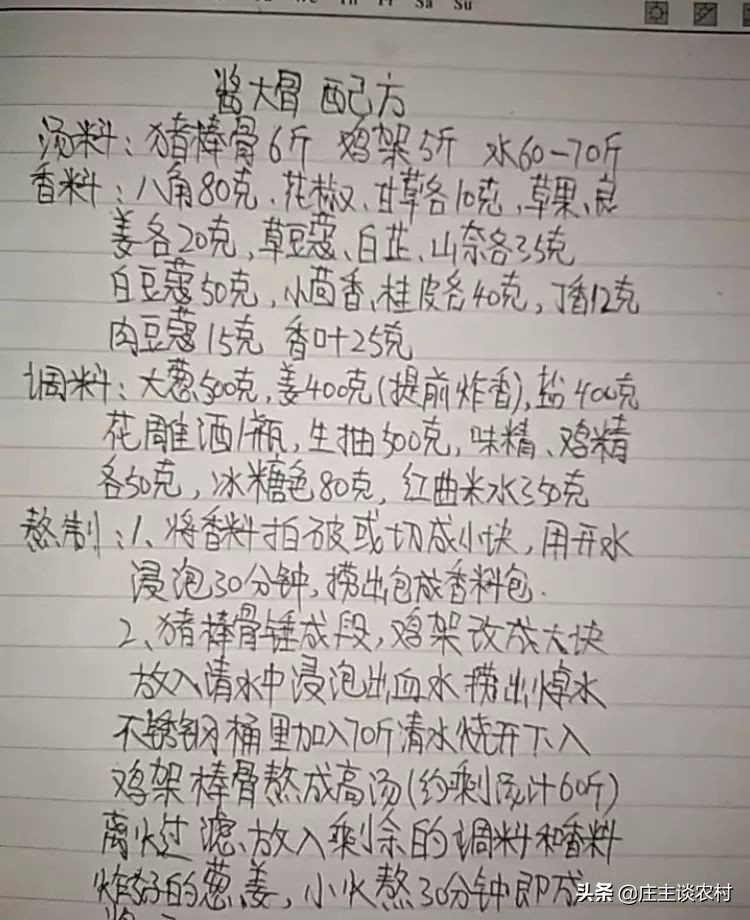 Fr Sa Su
酱大骨 配方
汤料：猪棒骨6斤 鸡架5斤 水60-70斤
香料：八角80克、花椒、甘草各10克，草果、良
姜各20克，草豆蔻、白芷、山奈各35克
白豆蔻50克，小茴香、桂皮各40克，丁香12克
肉豆蔻15克 香叶25克
调料：大葱500克，姜400克(提前炸香)，盐400克
花雕酒1瓶，生抽500克，味精、鸡精
各50克，冰糖色80克，红曲米水350克
熬制：1、将香料拍破或切成小快，用开水
浸泡30分钟，捞出包成香料包.
2、猪棒骨锤成段，鸡架改成大块
放入清水中浸泡出血水捞出焯水
不锈钢桶里加入70斤清水烧开下入
鸡架棒骨熬成高汤(约剩汤汁60斤)
离火过滤、放入剩余的调料和香料
炸好的葱姜，小火熬30分钟即成
头条 @庄主谈农村